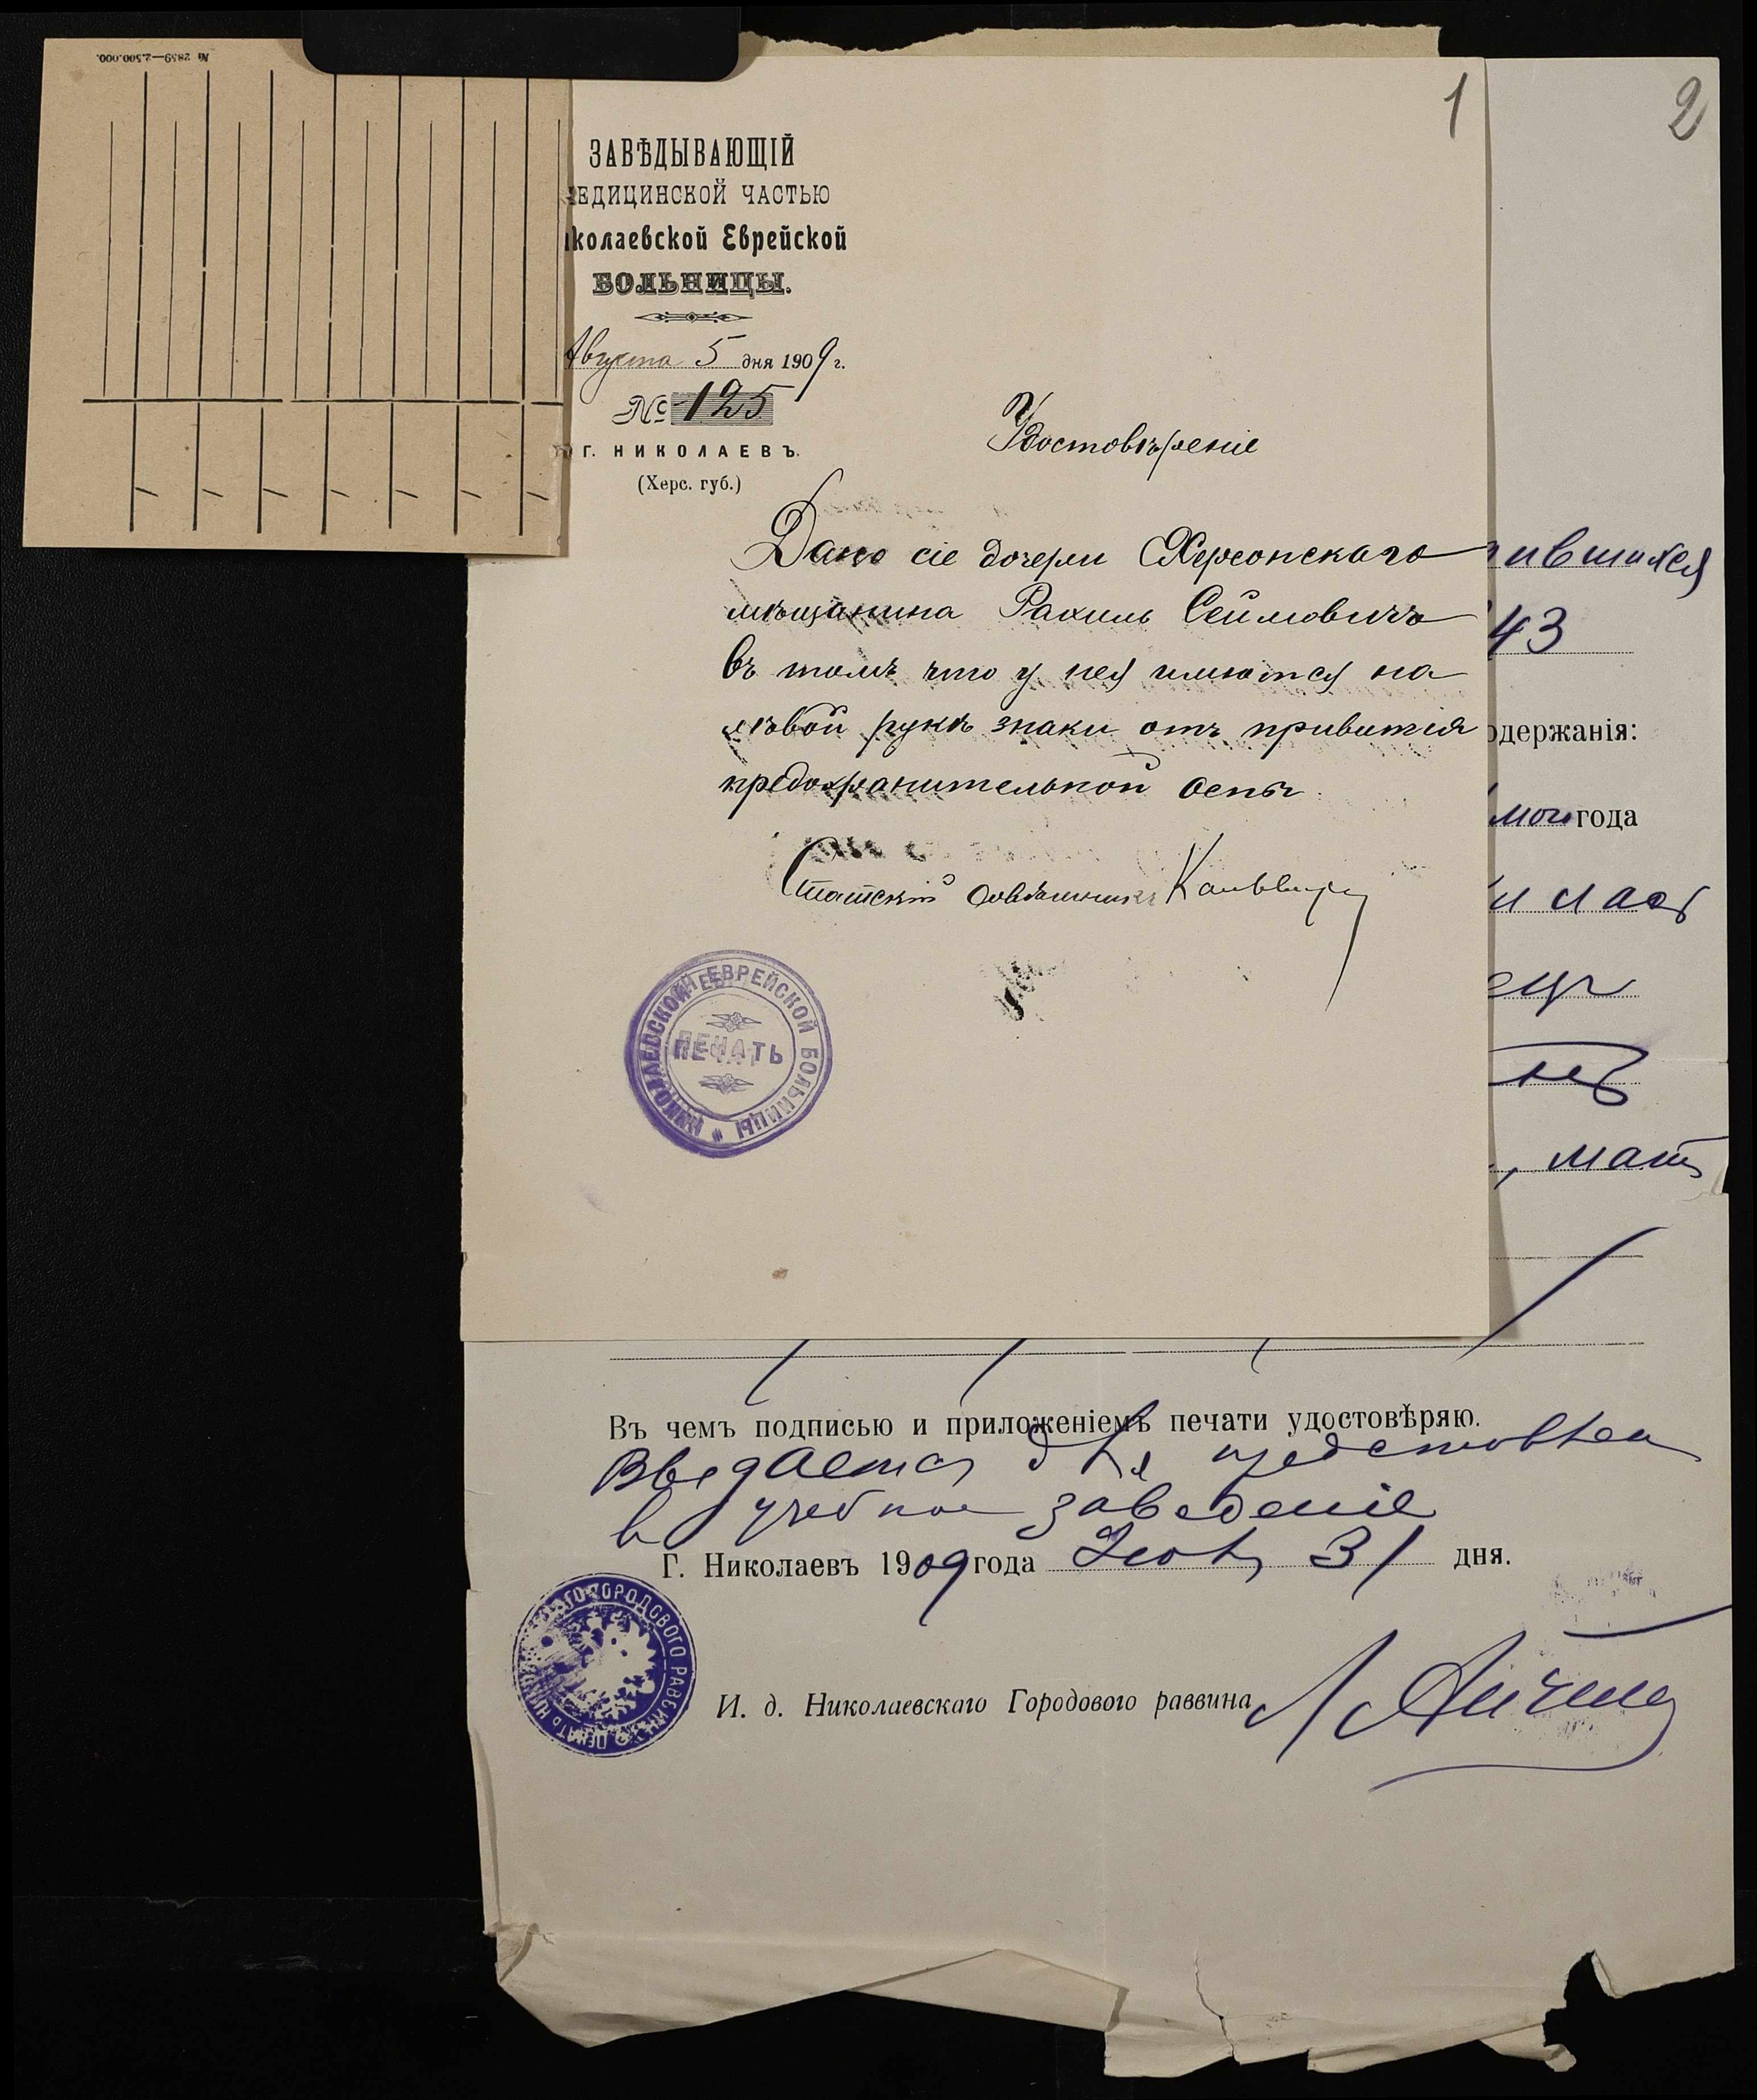 № 2859—2.500.000.
1
2
ЗАВѢДЫВАЮЩІЙ
МЕДИЦИНСКОЙ ЧАСТЬЮ
иколаевской Еврейской
БОЛЬНИЦЫ.
Августа 5 дня 1909 г.
№ 125
Г. НИКОЛАЕВЪ.
(Херс. губ.)
Удостовѣреніе
Дано сіе дочери Херсонскаго
мѣщанина Рахиль Сеймовичъ
въ томъ что у нея имѣются на
лѣвой рукѣ знаки отъ привитія
предохранительной оспы.
Статскій Совѣтникъ
НИКОЛАЕВСКОЙ ЕВРЕЙСКОЙ БОЛЬНИЦЫ
ПЕЧАТЬ
ившихся
43
одержанія:
года
, мать
Въ чемъ подписью и приложеніемъ печати удостовѣряю.
Выдается для представленія
в учебное заведеніе
Г. Николаевъ 1909 года Іюля 31 дня.
ГОРОДОВОГО РАВВИНА ПЕЧАТЬ
И. д. Николаевскаго Городового раввина